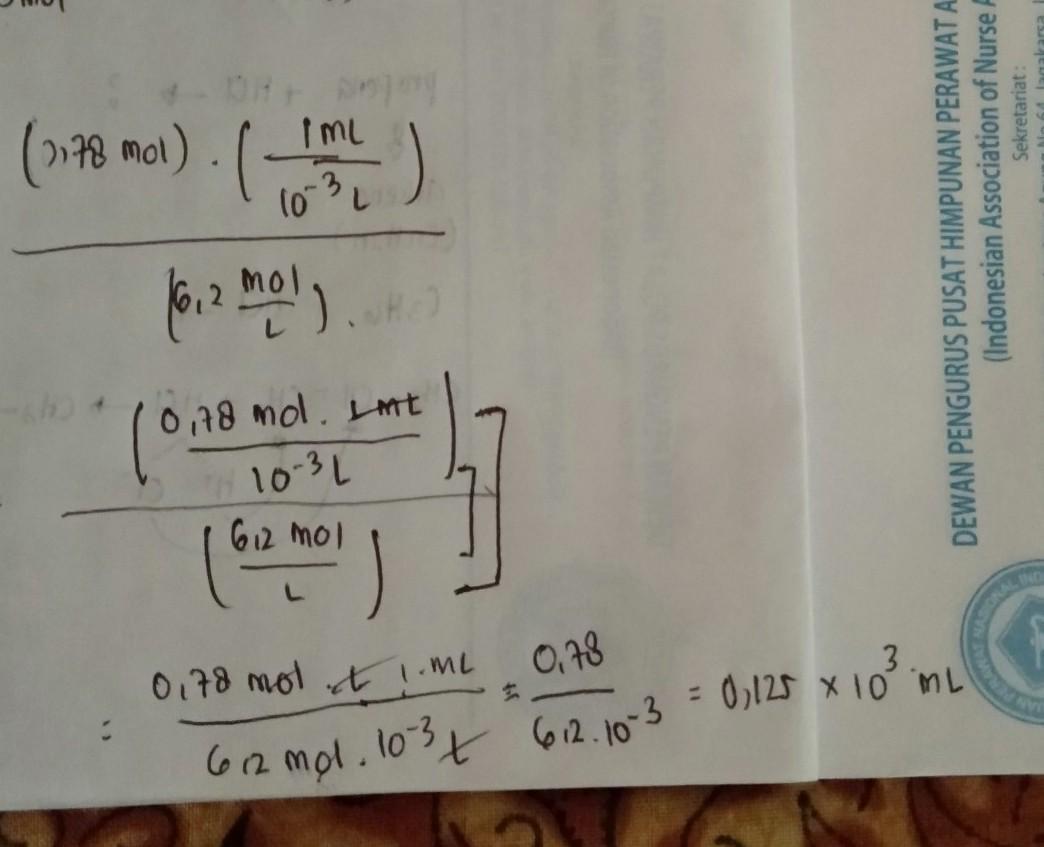 (0,78 mol) . ( 1 mL
10⁻³ L )
(6,2 mol
L ) .
( 0,78 mol . 1 mL
10⁻³ L )
( 6,2 mol
L )
= 0,78 mol . L 1 . mL = 0,78 = 0,125 × 10³ mL
6,2 mol . 10⁻³ L 6,2 . 10⁻³
DEWAN PENGURUS PUSAT HIMPUNAN PERAWAT A
(Indonesian Association of Nurse A
Sekretariat :